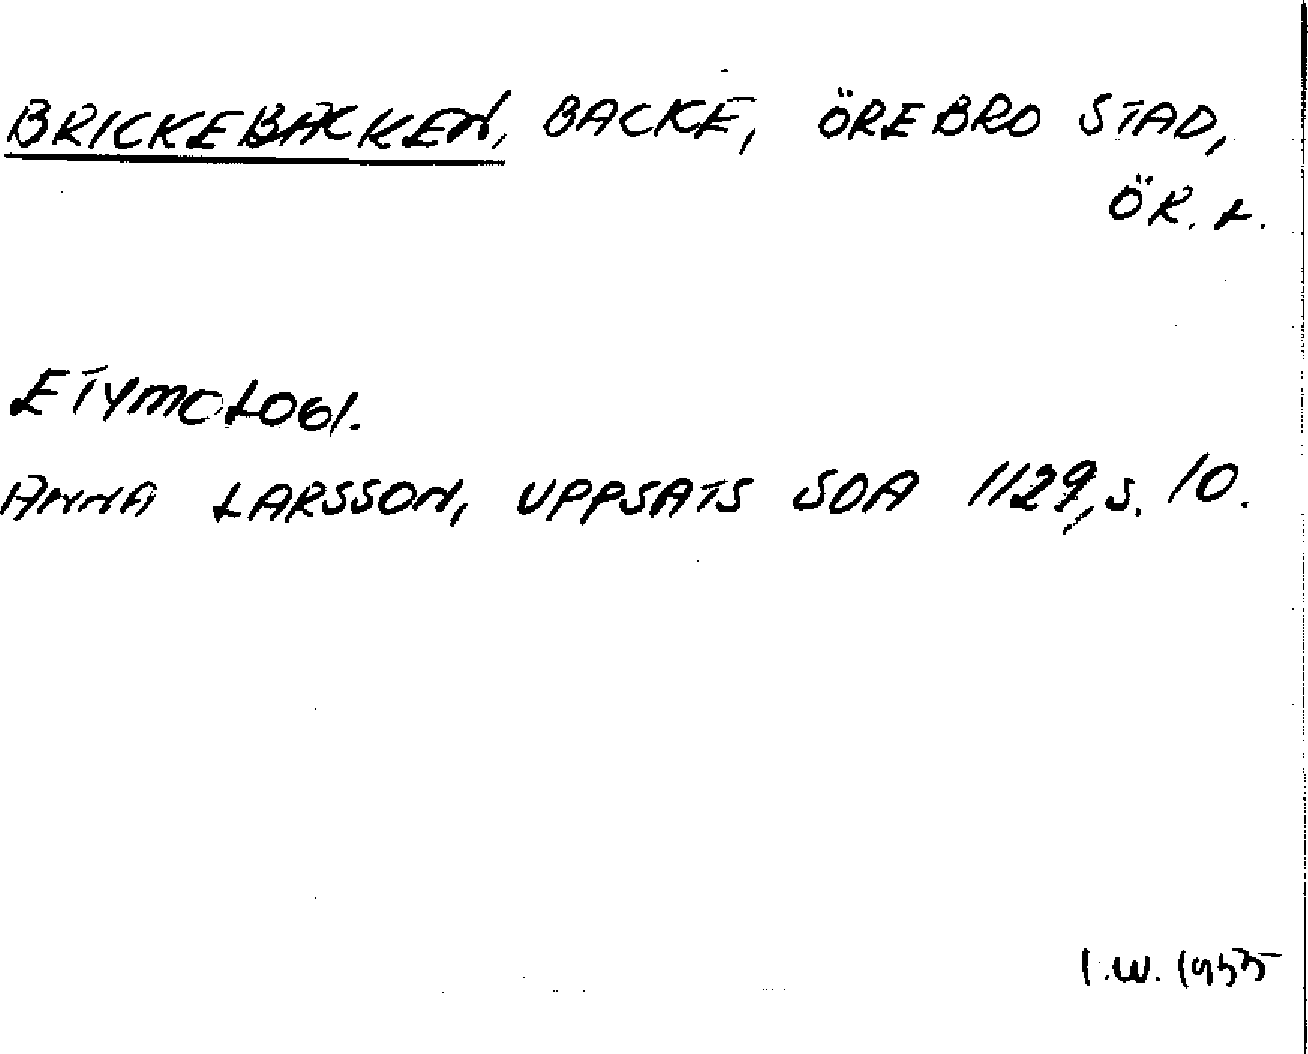 BRICKEBACKEN, BACKE, ÖREBRO STAD,
ÖR. L.
ETYMOLOGI.
ANNA LARSSON, UPPSATS SOA 1129, S. 10.
I.W. 1955